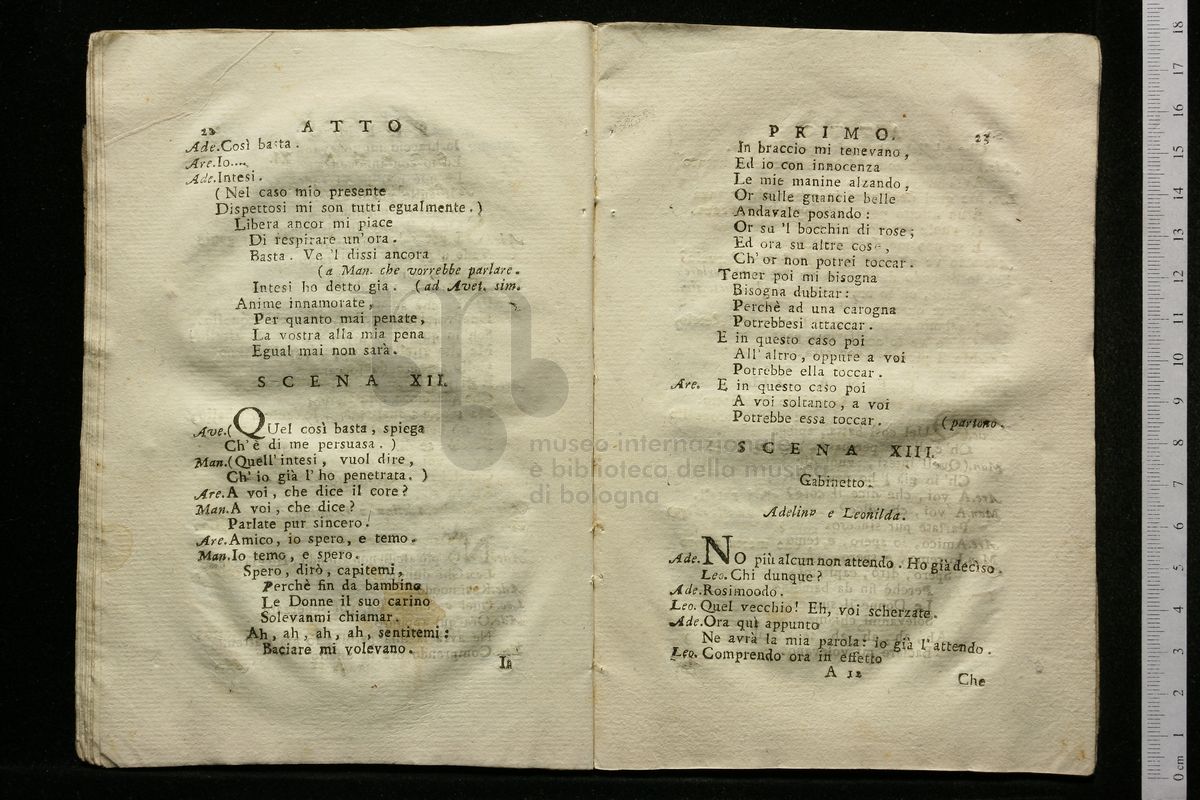 22 ATTO
Ade. Così basta.
Are. Io....
Ade. Intesi.
(Nel caso mio presente
Dispettosi mi son tutti egualmente.)
Libera ancor mi piace
Di respirare un'ora.
Basta. Ve 'l dissi ancora
(a Man. che vorrebbe parlare.
Intesi ho detto gia. (ad Avet. sim.
Anime innamorate,
Per quanto mai penate,
La vostra alla mia pena
Egual mai non sarà.
SCENA XII.
Ave. (QUel così basta, spiega
Ch'è di me persuasa.)
Man. (Quell'intesi, vuol dire,
Ch'io già l'ho penetrata.)
Are. A voi, che dice il core?
Man. A voi, che dice?
Parlate pur sincero.
Are. Amico, io spero, e temo.
Man. Io temo, e spero.
Spero, dirò, capitemi,
Perchè fin da bambino
Le Donne il suo carino
Solevanmi chiamar.
Ah, ah, ah, ah, sentitemi:
Baciare mi volevano.
In
PRIMO. 23
In braccio mi tenevano,
Ed io con innocenza
Le mie manine alzando,
Or sulle guancie belle
Andavale posando:
Or su 'l bocchin di rose;
Ed ora su altre cose,
Ch'or non potrei toccar.
Temer poi mi bisogna
Bisogna dubitar:
Perchè ad una carogna
Potrebbesi attaccar.
E in questo caso poi
All'altro, oppure a voi
Potrebbe ella toccar.
Are. E in questo caso poi
A voi soltanto, a voi
Potrebbe essa toccar.
(partono.
SCENA XIII.
Gabinetto.
Adelino e Leonilda.
Ade. NO più alcun non attendo. Ho già deciso.
Leo. Chi dunque?
Ade. Rosimondo.
Leo. Quel vecchio! Eh, voi scherzate.
Ade. Ora qui appunto
Ne avrà la mia parola: io già l'attendo.
Leo. Comprendo ora in effetto
A 12
Che
museo internazionale
e biblioteca della musica
di bologna
0 cm 1 2 3 4 5 6 7 8 9 10 11 12 13 14 15 16 17 18